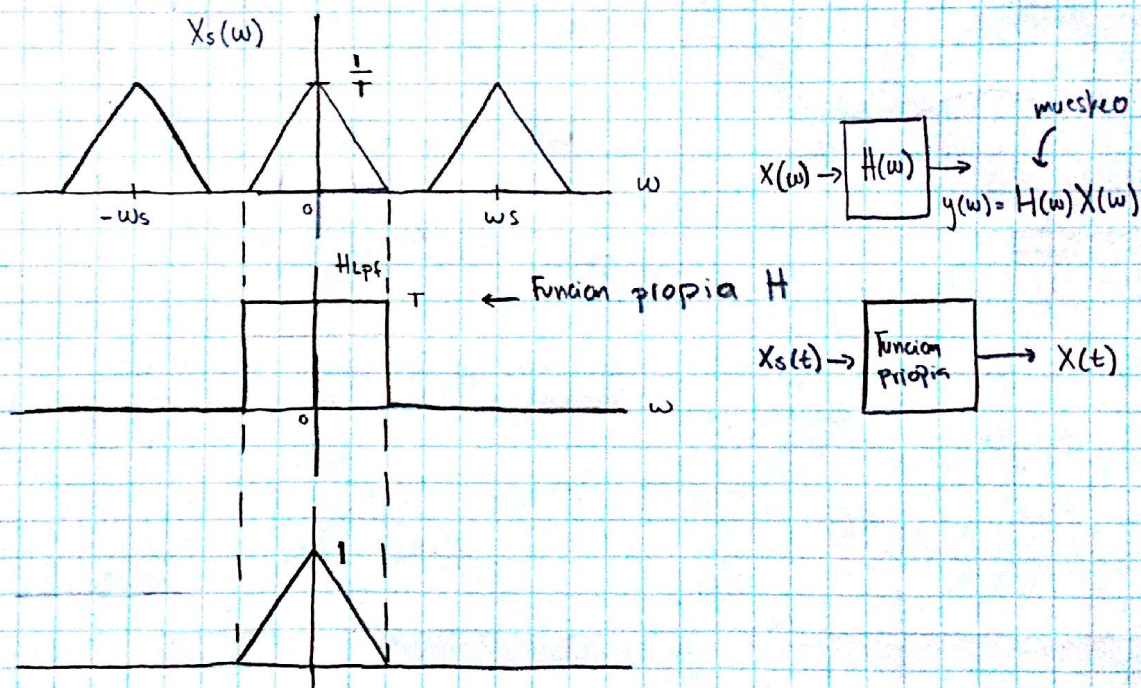 Xs(ω)
1/T
-ωs
0
ωs
ω
muestreo
X(ω) → H(ω) →
y(ω) = H(ω)X(ω)
HLpf
T ← Funcion propia H
0
ω
Xs(t) → Funcion priopia → X(t)
1